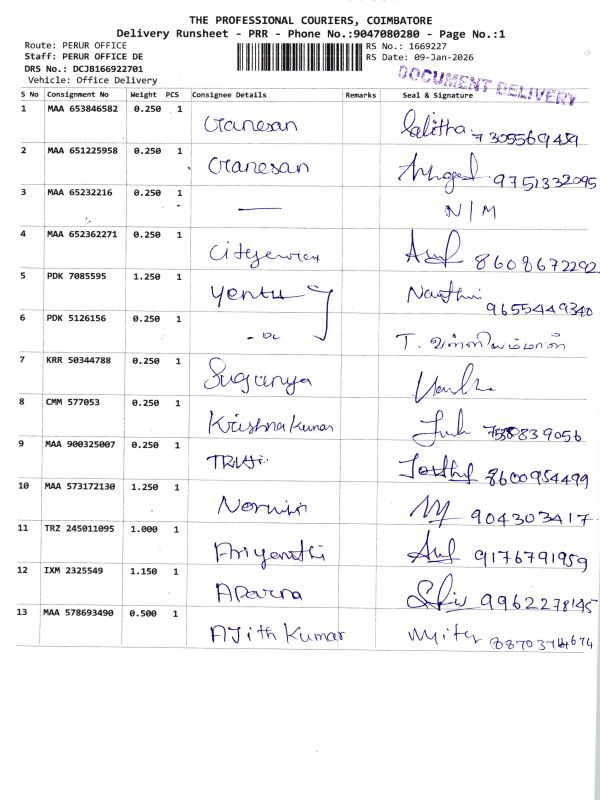 THE PROFESSIONAL COURIERS, COIMBATORE
Delivery Runsheet - PRR - Phone No.:9047080280 - Page No.:1
Route: PERUR OFFICE RS No.: 1669227
Staff: PERUR OFFICE DE RS Date: 09-Jan-2026
DRS No.: DCJB166922701
Vehicle: Office Delivery
DOCUMENT DELIVERY
S No Consignment No Weight PCS Consignee Details Remarks Seal & Signature
1 MAA 653846582 0.250 1 Ganesan Lalitha 7305569459
2 MAA 651225958 0.250 1 Ganesan 9751332095
3 MAA 65232216 0.250 1 — N/M
4 MAA 652362271 0.250 1 8608672292
5 PDK 7085595 1.250 1 Nanthini 9655449340
6 PDK 5126156 0.250 1 - Do T. வள்ளியம்மாள்
7 KRR 50344788 0.250 1 Suganya
8 CMM 577053 0.250 1 Krishna Kumar
9 MAA 900325007 0.250 1 8600954499
10 MAA 573172130 1.250 1 904303417
11 TRZ 245011095 1.000 1 9176791959
12 IXM 2325549 1.150 1 Aparna 9962278145
13 MAA 578693490 0.500 1 AJith Kumar